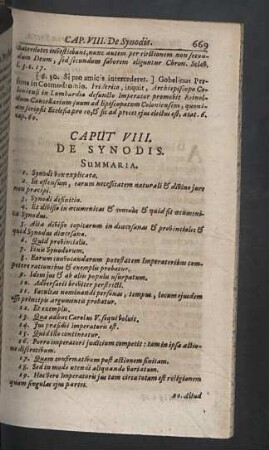 CAP. VIII. De Synodis. 669
thedrales investiebant, nunc autem per electionem non secundum Deum, sed secundum favorem eliguntur Chron. Sclav.
l. 3. c. 17.
[ §. 30. Si pro amicis intercederet. ] Gobelinus Persona in Cosmodromio. Fridericus, inquit, Archiepiscopo Coloniensi in Lombardia defuncto imperator promovit Reinoldum Cancellarium suum ad Episcopatum Coloniensem, quem
cap. 60.
CAPUT VIII.
DE SYNODIS.
SUMMARIA.
1. Synodi vox explicata.
2. Ex ostensum, earum necessitatem naturali & divino jure
præcipi.
3. Synodi definitio.
4. Et divisio in œcumenicas & & quid sit œcumenica Synodus.
5. Alia divisio earum in diœcesanas & provinciales &
quid Synodus diœcesana.
6. Quid provincialis.
7. Finis Synodorum.
8. Earum convocandarum potestatem Imperatoribus competere rationibus & exemplis probatur.
9. Idem jus & ab aliis populis usurpatum.
10. Adversarii breviter perstricti.
11. Facultas nominandi personas, tempus, locum ejusdem
esse principis argumentis probatur.
12. Et exemplis.
13. Qua adhuc Carolus V. sequi voluit.
14. Jus præsidii imperatoris est.
15. Quid illo contineatur.
16. Porro imperatori judicium competit: tam in ipsa actione
17. Quam confirmativum post actionem finitam.
18. Sed in modo utendi aliquando variatum.
19. Hoc vero Imperatoris jus tam circa totam est religionem
quam singulas ejus partes.
20. aliud